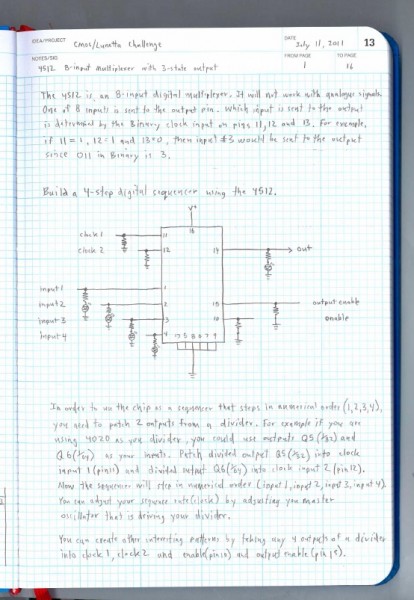 IDEA/PROJECT
Cmos/Lunetta Challenge
DATE
July 11, 2011
13
NOTES/SIG
4512 8-input multiplexer with 3-state output
FROM PAGE
1
TO PAGE
16
The 4512 is an 8-input digital multiplexer. It will not work with analogue signals.
One of 8 inputs is sent to the output pin. Which input is sent to the output
is determined by the Binary clock input on pins 11, 12 and 13. For example,
if 11=1, 12=1 and 13=0, then input #3 would be sent to the output
since 011 in Binary is 3.
Build a 4-step digital sequencer using the 4512.
V+
16
clock 1
11
clock 2
12
14
out
input 1
1
input 2
2
15
output enable
input 3
3
10
enable
input 4
4
7 5 6 9
In order to use the chip as a sequencer that steps in numerical order (1,2,3,4),
you need to patch 2 outputs from a divider. For example if you are
using 4020 as you divider, you could use outputs Q5 (/32) and
Q6 (/64) as your inputs. Patch divided output Q5 (/32) into clock
input 1 (pin 11) and divided output Q6 (/64) into clock input 2 (pin 12).
Now the sequencer will step in numerical order. (input 1, input 2, input 3, input 4).
You can adjust your sequence rate (clock) by adjusting you master
oscillator that is driving your divider.
You can create other interesting patterns by taking any 4 outputs of a divider
into clock 1, clock 2 and enable (pin 10) and output enable (pin 15).